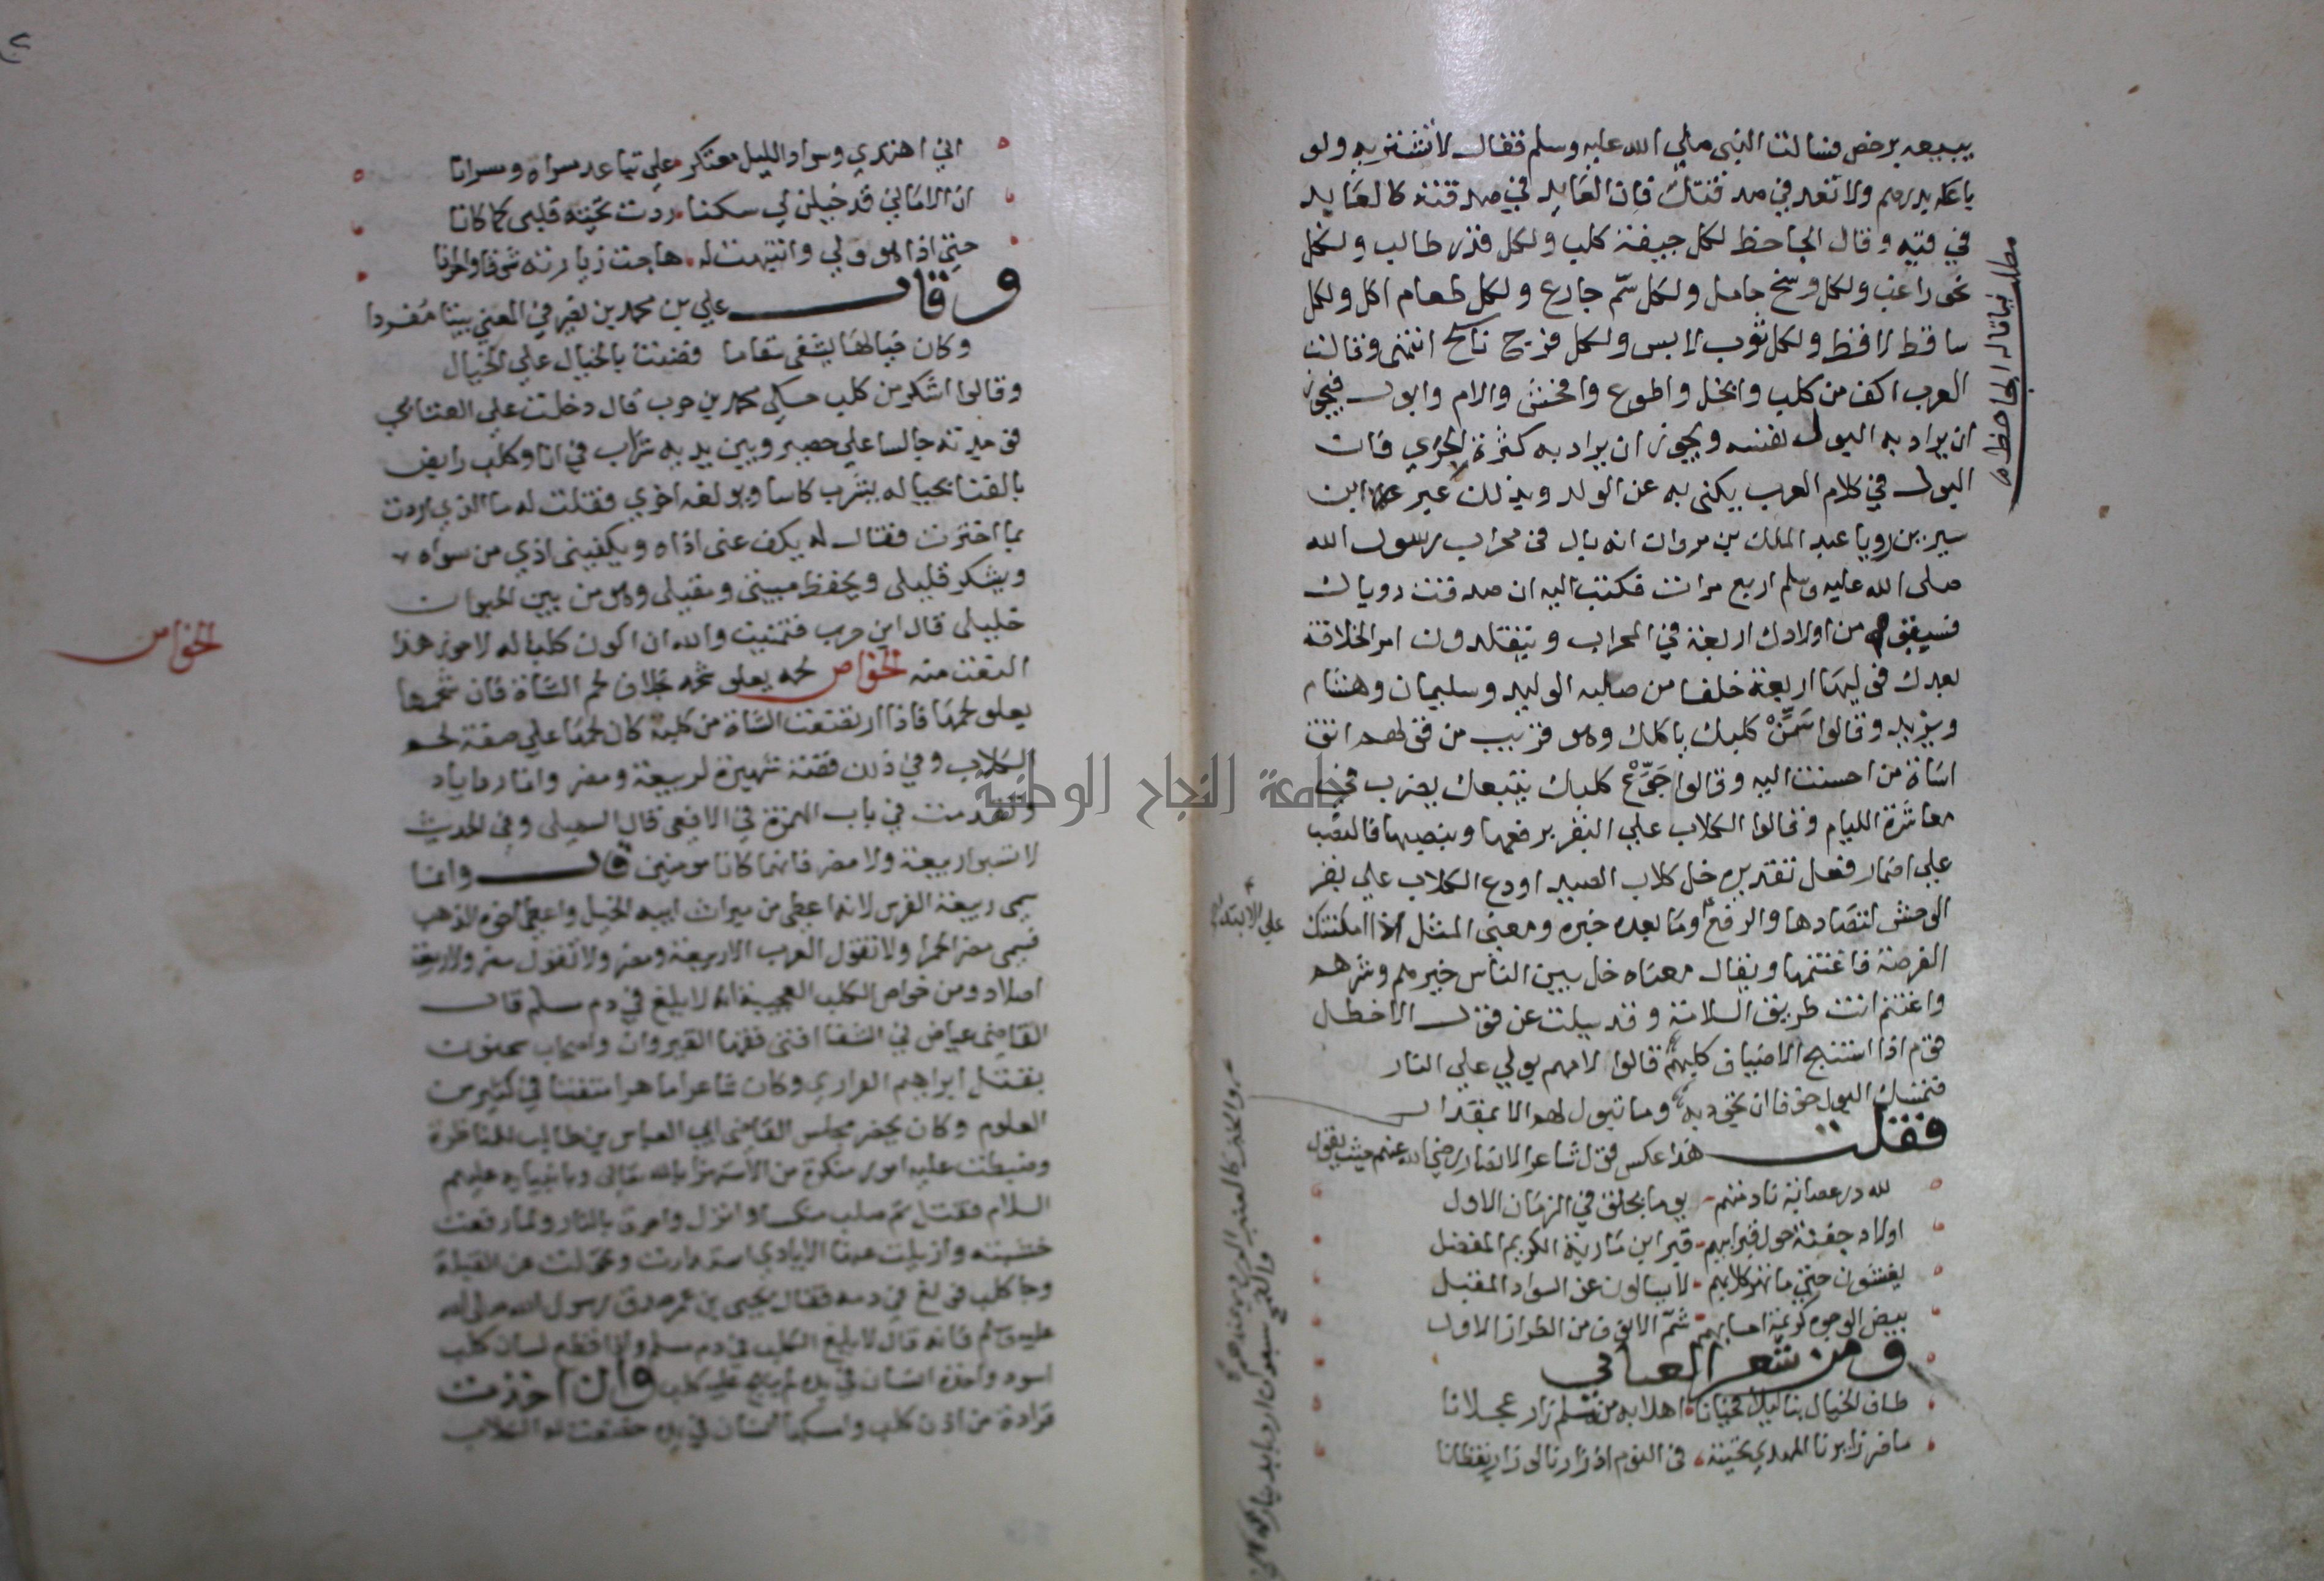 يبيعه برخص فسالت النبي صلي الله عليه وسلم فقال لا تشتريه ولو
باعكه بدرهم ولا تعد في صدقتك فان العايد في صدقته كالعايد
في قيه وقال الجاحظ لكل جيفة كلب ولكل قذر طالب ولكل
نحو راغب ولكل وسخ حامل ولكل سم جارع ولكل طعام اكل ولكل
ساقط لاقط ولكل ثوب لابس ولكل فرج ناكح انتهي وقالت
العرب اكف من كلب وابخل واطوع وافحش والام وابول فيجوز
ان يراد به البول نفسه ويجوز ان يراد به كثرة الجري فان
البول في كلام العرب يكنى به عن الولد وبذلك عبر ابن
سيرين رويا عبد الملك بن مروان انه بال في محراب رسول الله
صلى الله عليه وسلم اربع مرات فكتب اليه ان صدقت روياك
فسيقوم من اولادك اربعة في المحراب ويتقلدون امر الخلافة
بعدك فوليها اربعة خلفا من صلبه الوليد وسليمان وهشام
ويزيد وقالوا سَمِّنْ كلبك ياكلك وهو قريب من قولهم اتق
اساة من احسنت اليه وقالوا جَوِّعْ كلبك يتبعك يضرب في
معاشرة الليام وقالوا الكلاب علي البقر برفعها وبنصبها فالنصب
علي اضمار فعل تقديره خل كلاب الصيد اودع الكلاب علي بقر
الوحش لتصادها والرفع وما بعده خبره ومعني المثل اذا امكنتك
على الابتدا
الفرصة فاغتنمها ويقال معناه خل بين الناس خيرهم وشرهم
واغتنم انت طريق السلامة وقد سيلت عن قول الاخطل
قوم اذا استنبح الاضياف كلبهم قالوا لامهم بولي علي النار
فتمسك البول خوفا ان تجود به وما تبول لهم الا بمقدار
فقلت هذا عكس قول شاعر الانصار رضي الله عنهم حيث يقول
لله در عصابة نادمتهم يوما بجلق في الزمان الاول
اولاد جفنة حول قبر ابيهم قبر ابن مارية الكريم المفضل
يغشون حتي ما تهر كلابهم لا يسالون عن السواد المقبل
بيض الوجوه كريمة احسابهم شم الانوف من الطراز الاول
ومن شعر العتابي
طاف الخيال بنا ليلا فحيانا اهلا به من مسلم زار عجلانا
ما ضر زايرنا المهدي تحيته في النوم اذ زارنا لو زار يقظانا
مطلب فيما قاله الجاحظ
والخبز كالعنبر الوردي عندهم
والقمح سبعون اردبا بدينار
اني اهتدي وسواد الليل معتكر علي تباعد مسراه ومسرانا
ان الاماني قد خيلن لي سكنا ردت تحيته قلبي كما كانا
حتي اذا هو ولي وانتبهت له هاجت زيارته شوقا واحزانا
وقال علي بن محمد بن نصر في المعني بيتا مفردا
وكان خيالها يشفي سقاما فضنت بالخيال علي الخيال
وقالوا اشكر من كلب حكي محمد بن حرب قال دخلت علي العتابي
فوجدته جالسا علي حصير وبين يديه شراب في انا وكلب رابض
بالفنا بحياله يشرب كاسا ويولغه اخري فقلت له ما الذي اردت
بما اخترت فقال انه يكف عني اذاه ويكفيني اذي من سواه
ويشكر قليلي ويحفظ مبيتي ومقيلي وهو من بين الحيوان
خليلي قال ابن حرب فتمنيت والله ان اكون كلبا له لاحوز هذا
النعت منه الخواص لحمه يعلو شحمه بخلاف لحم الشاة فان شحمها
الخواص
يعلو لحمها فاذا ارتضعت الشاة من كلبة كان لحمها علي صفة لحم
الكلاب وفي ذلك قصة شهيرة لربيعة ومضر وانمار واياد
وتقدمت في باب الهمزة في الافعي قال السهيلي وفي الحديث
لا تسبوا ربيعة ولا مضر فانهما كانا مومنين قال وانما
سمي ربيعة الفرس لانه اعطي من ميراث ابيه الخيل واعطي اخوه الذهب
فسمي مضر الحمرا ولا تقول العرب الا ربيعة ومضر ولا تقول مضر وربيعة
اصلا ومن خواص الكلب العجيبة انه لا يلغ في دم مسلم قال
القاضي عياض في الشفا افتى فقها القيروان واصحاب سحنون
بقتل ابراهيم الفزاري وكان شاعرا ماهرا متفننا في كثير من
العلوم وكان يحضر مجلس القاضي ابي العباس بن طالب للمناظرة
وضبطت عليه امور منكرة من الاستهزا بالله تعالي وبانبيايه عليهم
السلام فقتل ثم صلب منكسا وانزل واحرق بالنار ولما رفعت
خشبته وازيلت عنها الايادي استدارت وتحولت عن القبلة
وجا كلب فولغ في دمه فقال يحيى بن عمر صدق رسول الله صلى الله
عليه وسلم فانه قال لا يلغ الكلب في دم مسلم واذا قطع لسان كلب
اسود واخذه انسان في يده لم ينبح عليه كلب وان اخذت
قرادة من اذن كلب وامسكها انسان في يده خضعت له الكلاب
جامعة النجاح الوطنية